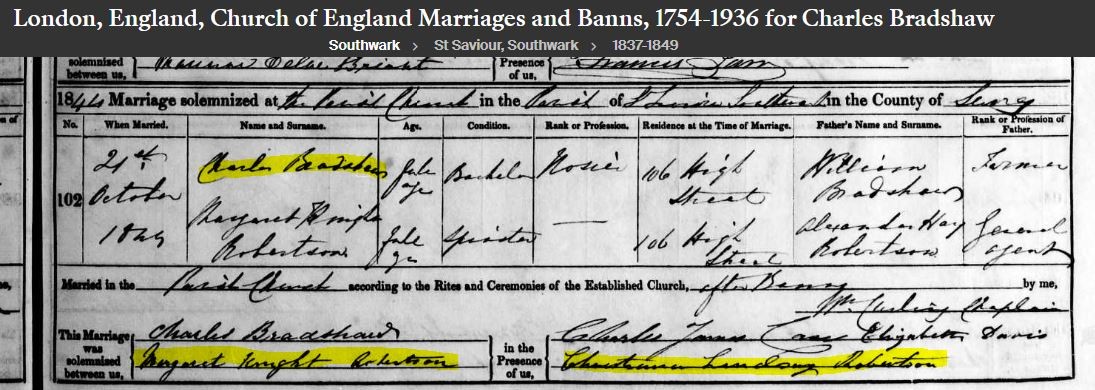 London, England, Church of England Marriages and Banns, 1754-1936 for Charles Bradshaw
Southwark > St Saviour, Southwark > 1837-1849
solemnized
between us,
Presence
of us,
1844 Marriage solemnized at the Parish Church in the Parish of St Saviour Southwark in the County of Surrey
No. When Married. Name and Surname. Age. Condition. Rank or Profession. Residence at the Time of Marriage. Father's Name and Surname. Rank or Profession of Father.
102
21st October 1844
Charles Bradshaw Full age Bachelor Hosier 106 High Street William Bradshaw Farmer
Margaret Knight Robertson Full age Spinster — 106 High Street Alexander Hay Robertson General agent
Married in the Parish Church according to the Rites and Ceremonies of the Established Church, after Banns by me,
Wm Curling Chaplain
This Marriage was solemnized between us,
Charles Bradshaw
Margaret Knight Robertson
in the Presence of us,
Charles James Elizabeth Davis
Christiana Lindsay Robertson